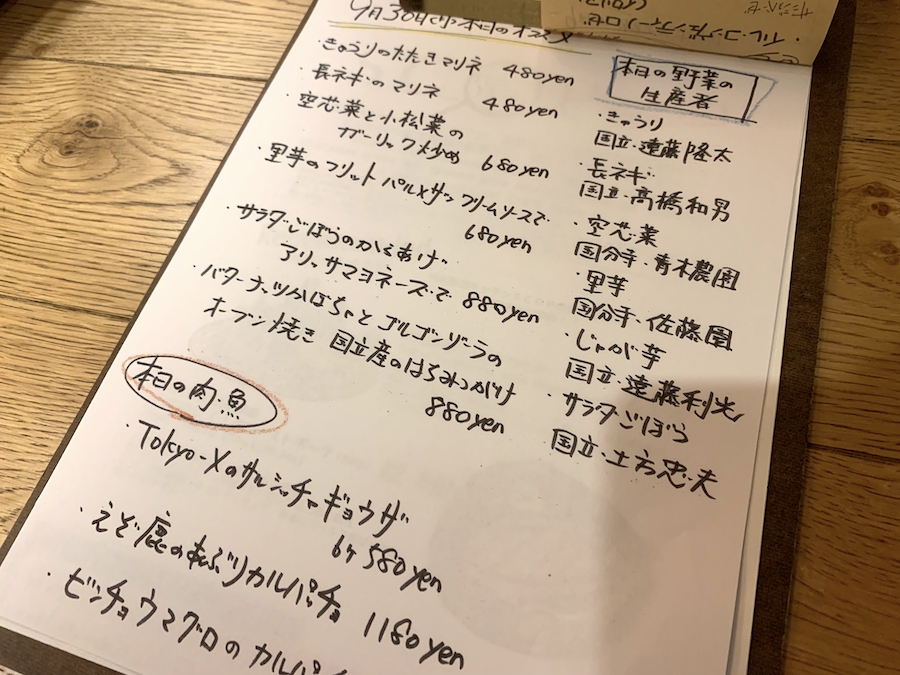 9月30日(水)本日のオススメ
・きゅうりのたたきマリネ 480yen
・長ネギのマリネ 480yen
・空芯菜と小松菜の
ガーリック炒め 680yen
・里芋のフリット パルメザンクリームソースで
680yen
・サラダごぼうのからあげ
アリッサマヨネーズで 880yen
・バターナッツかぼちゃとゴルゴンゾーラの
オーブン焼き 国立産のはちみつがけ
880yen
本日の肉・魚
・Tokyo-Xのサルシッチャギョウザ
6ヶ 580yen
・えぞ鹿のあぶりカルパッチョ 1180yen
・ビンチョウマグロのカルパ
本日の野菜の
生産者
・きゅうり
国立・遠藤隆太
・長ネギ
国立・高橋和男
・空芯菜
国分寺・青木農園
・里芋
国分寺・佐藤園
・じゃが芋
国立・遠藤利光
・サラダごぼう
国立・土方忠夫